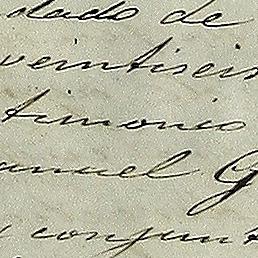 dado de
veintiseis
timonio
anuel G
y conjunt